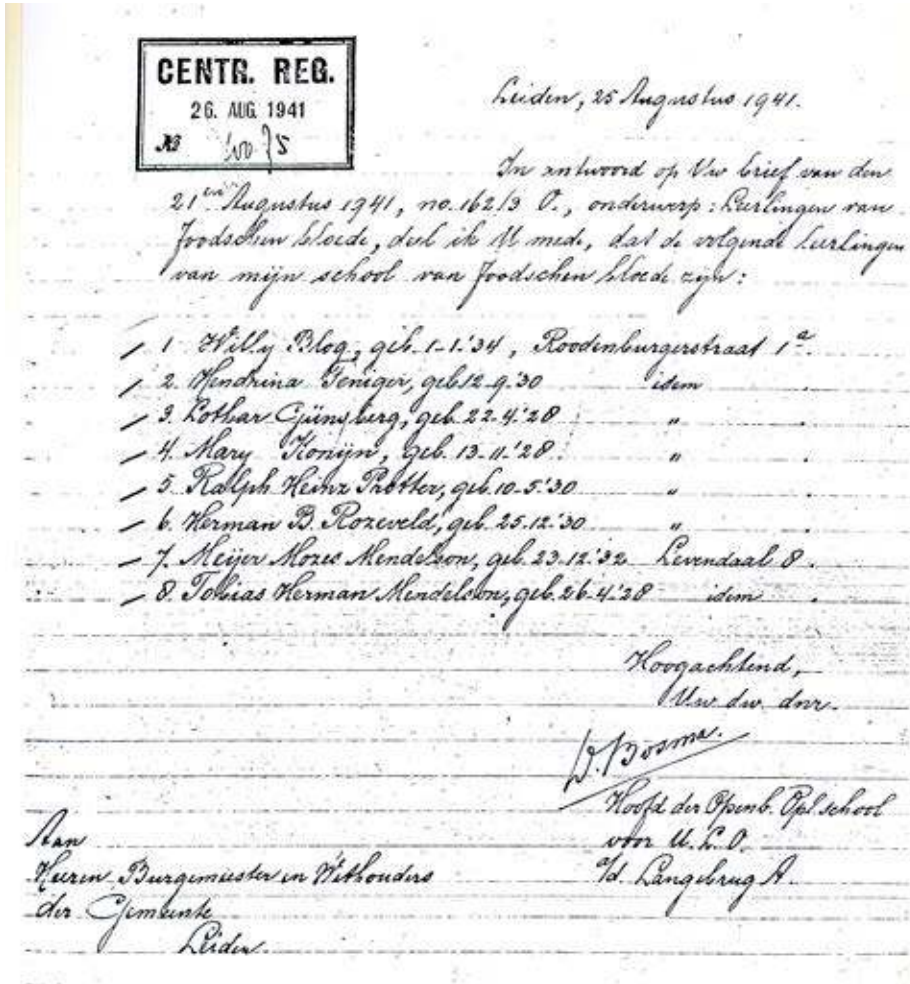 CENTR. REG.
26. AUG. 1941
No
Leiden, 25 Augustus 1941.
In antwoord op Uw brief van den
21en Augustus 1941, no. 162/3 O., onderwerp: Leerlingen van
Joodschen bloede, deel ik U mede, dat de volgende leerlingen
van mijn school van Joodschen bloede zijn:
1 Willy Blog, geb. 1-1-'34, Roodenburgerstraat 1a.
2. Hendrina geb. 12-9-'30 idem .
3. Lothar Günsberg, geb. 22-4-'28 " .
4. Mary Konijn, geb. 13-11-'28. " .
5. Ralph Heinz Protter, geb. 10-5-'30 " .
6. Herman B. Rozeveld, geb. 25-12-'30 " .
7. Meijer Mozes Mendelson, geb. 23-12-'32 Levendaal 8.
8. Tobias Herman Mendelson, geb. 26-4-'28 idem .
Hoogachtend,
Uw dw. dnr.
D. Bosma.
Hoofd der Openb. Opl. school
voor U. L. O.
a/d. Langebrug A.
Aan
Heeren Burgemeester en Wethouders
der Gemeente
Leiden.